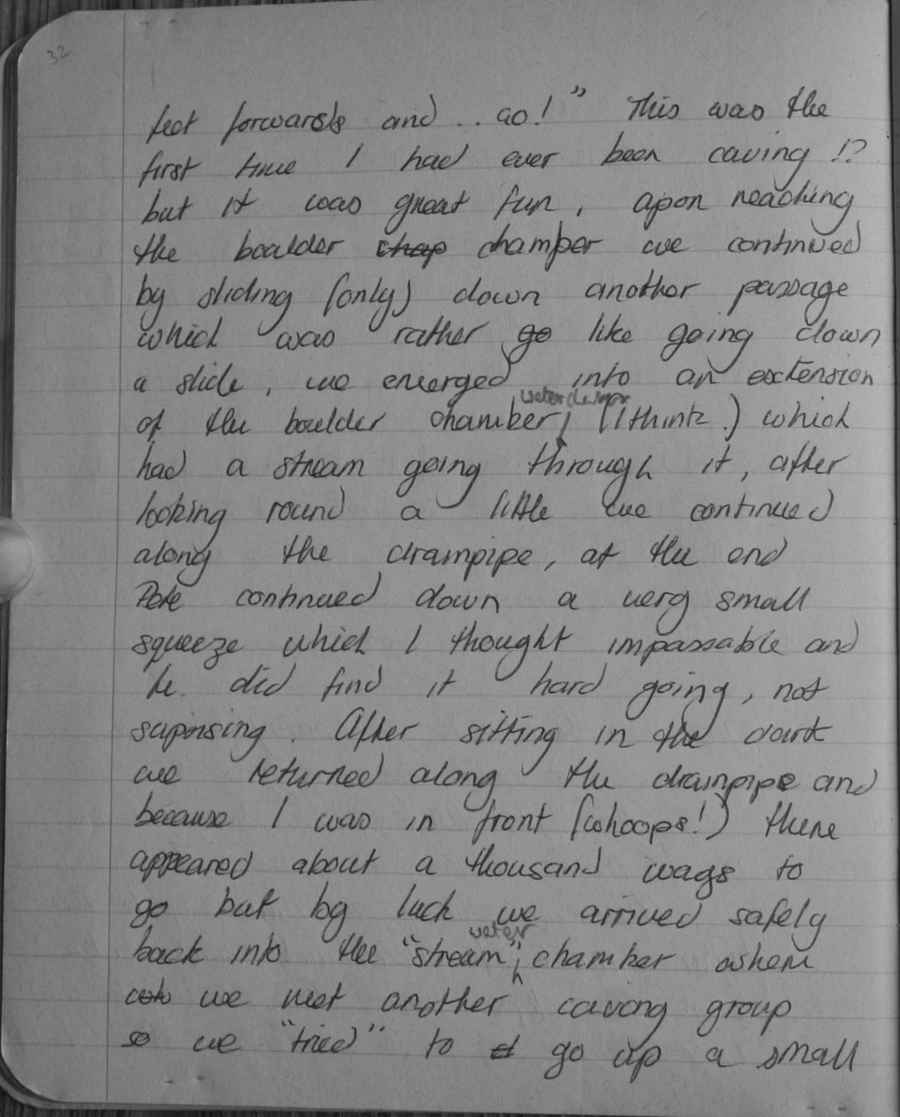 32
feet forwards and .. Go!" This was the
first time I had ever been caving !?
but it was great fun, apon reaching
the boulder chap champer we continued
by sliding (only) down another passage
which was rather go like going down
a slide, we emerged into an extension
of the boulder chamber, (I think.) which
had a stream going through it, after
looking round a little we continued
along the drainpipe, at the end
Pete continued down a very small
squeeze which I thought impassable and
he did find it hard going, not
suprising. After sitting in the dark
we returned along the drainpipe and
because I was in front (whoops!) there
appeared about a thousand ways to
go but by luck we arrived safely
water
back into the "stream", chamber where
we met another caving group
so we "tried" to go up a small